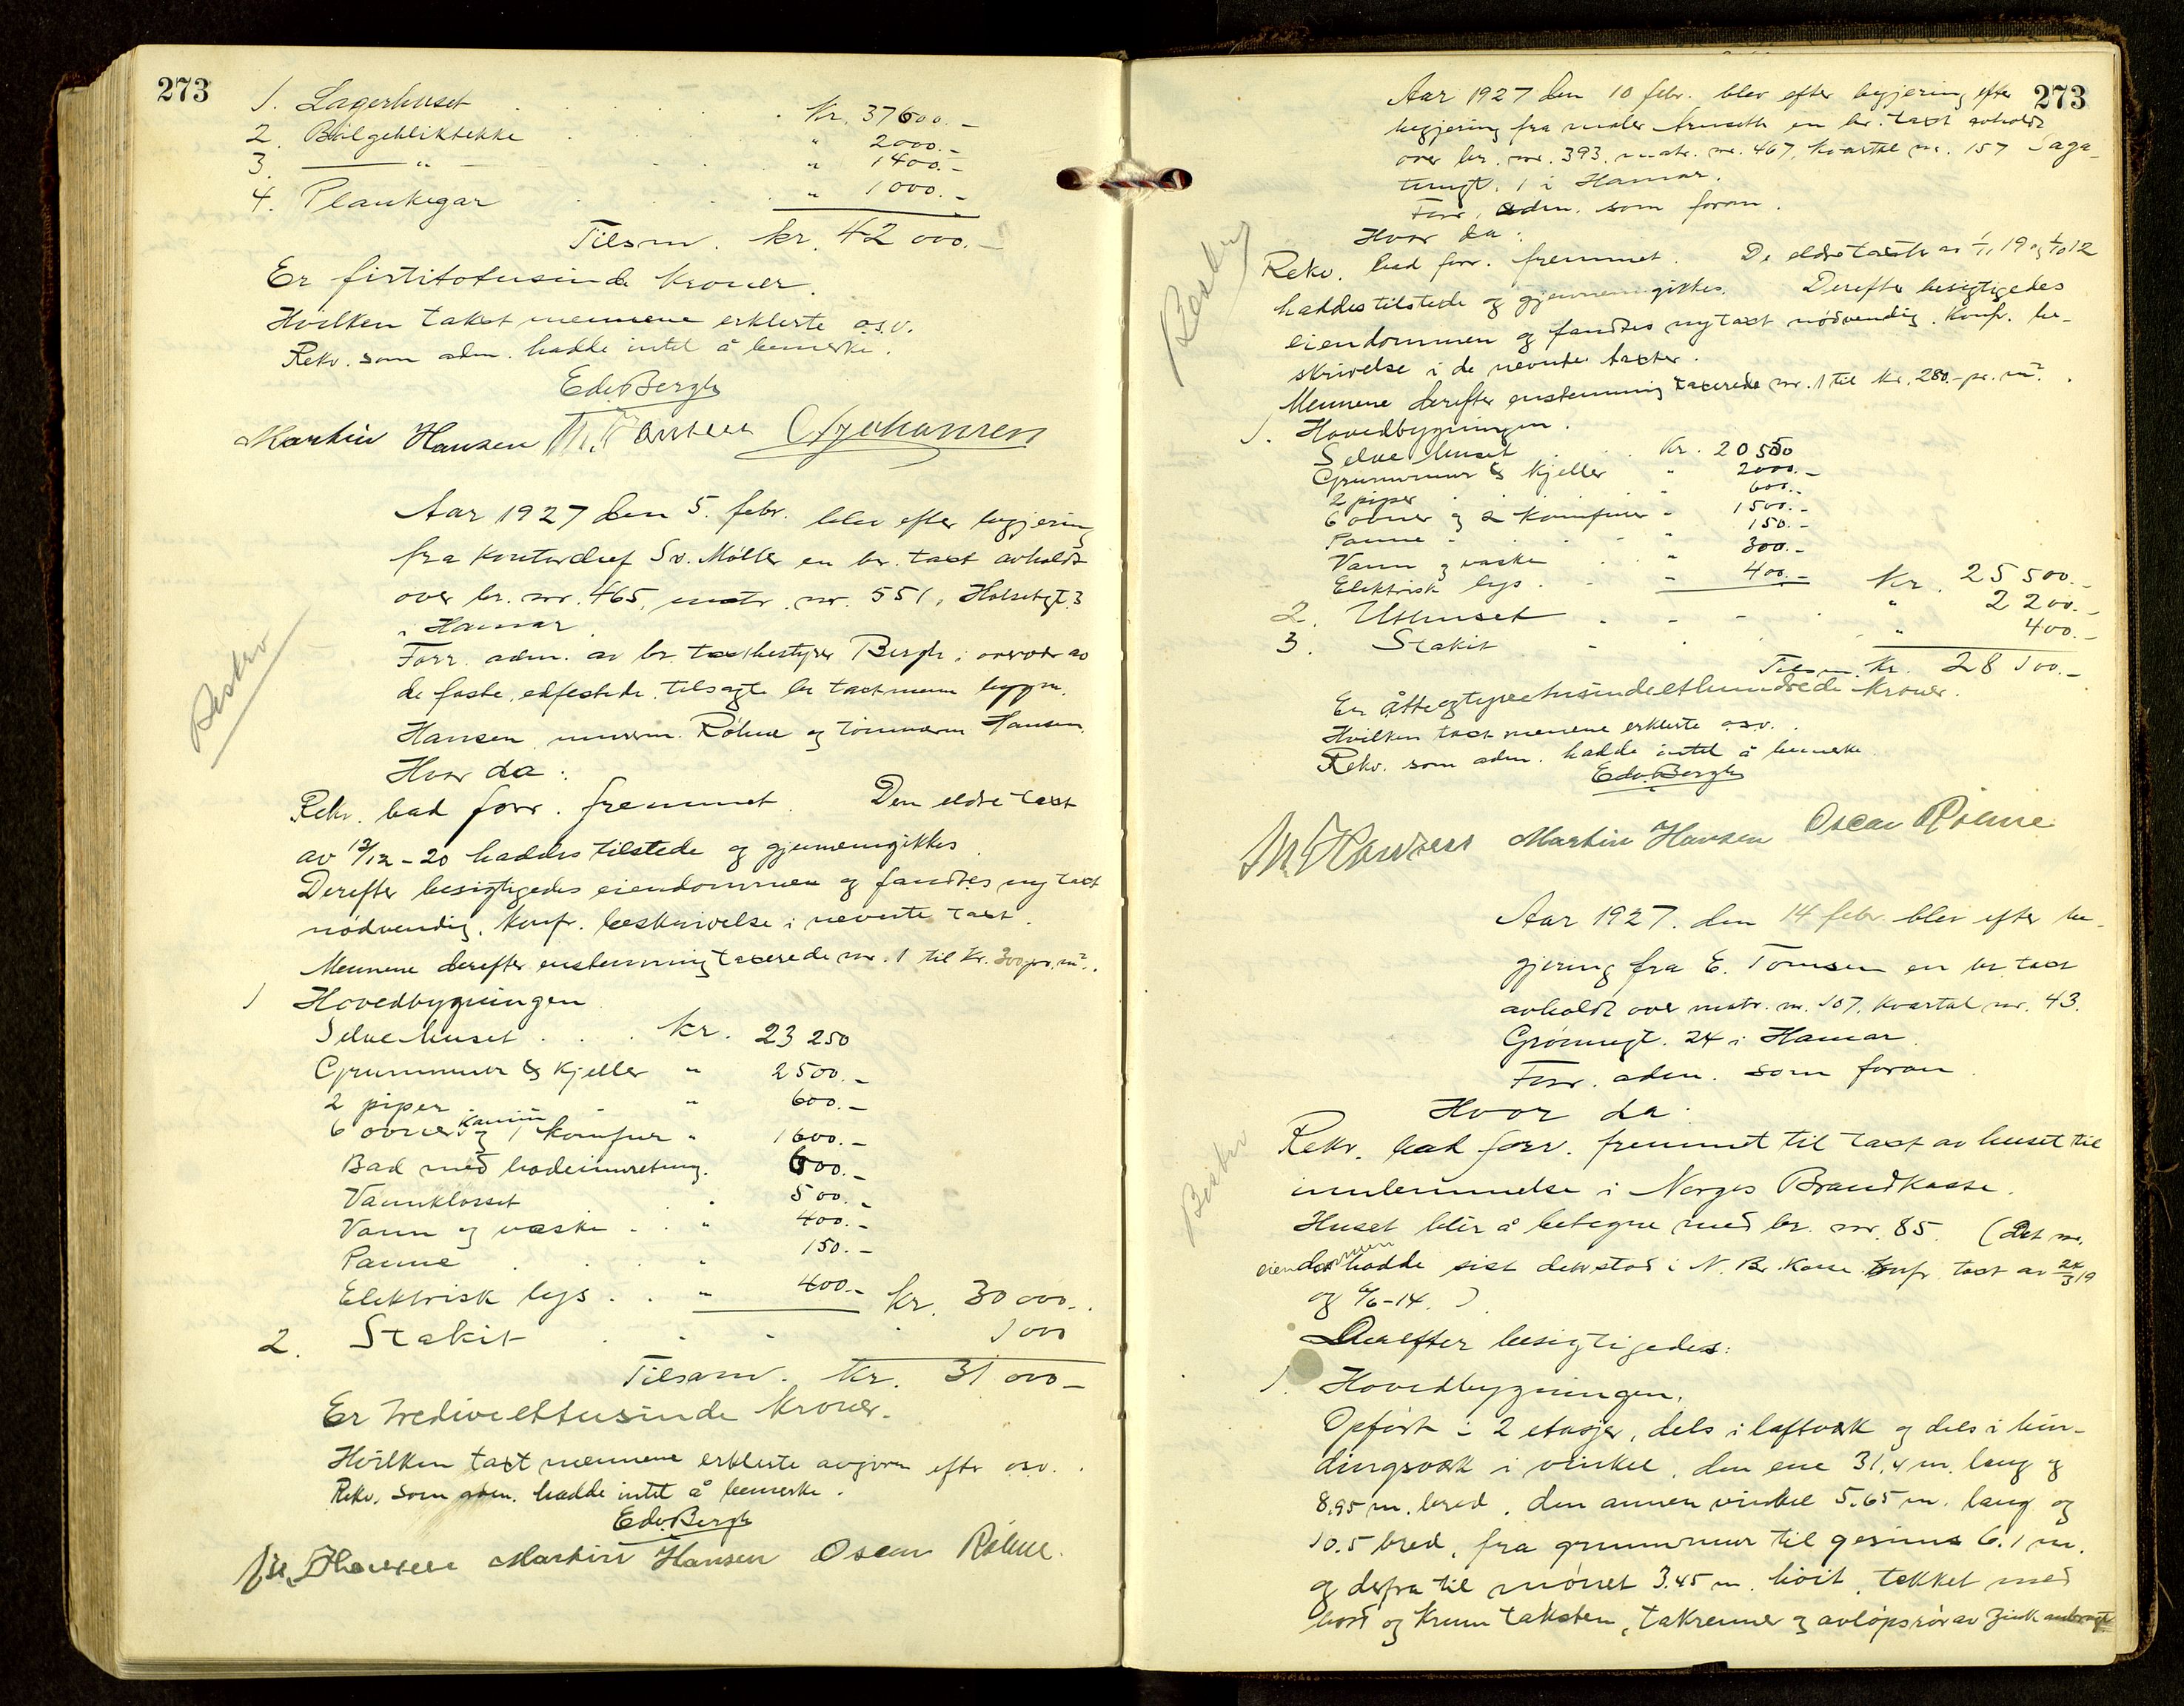 273
1. Lagerhuset . . . . . Kr. 37600.-
2. Bølgebliktekke . . . " 2000.-
3. —— " — . . . " 1400.-
4. Plankegar . . . " 1000.-
Tilsm. kr. 42 000.-
Er førtitotusinde kroner.
Hvilken takst mennene erklerte o.s.v.
Rekv. som adm. hadde intet å bemerke.
Edv. Bergh
Martin Hansen M. Hansen Johansen
Aar 1927 den 5. febr. blev efter begjering
fra kontorchef Sv. Møller en br. taxt avholdt
over br. nr. 465, matr. nr. 551, Holsetgt. 3
i Hamar.
Forr. adm. av br. taxtbestyrer Bergh i overvær av
de faste, edfestede, tilsagte br. taxtmenn bygm.
Hansen, murerm. Röhne og tømmerm. Hansen.
Hvor da:
Rekv. bad forr. fremmet. Den eldre taxt
av 13/12 - 20 haddes tilstede og gjennemgikkes.
Derefter besigtigedes eiendommen og fandtes ny taxt
nødvendig. Konfr. beskrivelse i nevnte taxt.
Mennene derefter enstemmig taxerede nr. 1 til Kr. 300 pr. m².
1 Hovedbygningen
Selve huset . . . Kr. 23 250
Grunnmur & Kjeller " 2500.-
2 piper . . " 600.-
6 ovner, kamin og 1 komfur " 1600.-
Bad med badeinnretning. 600.-
Vannklosset . 500.-
Vann og vaske . . " 400.-
Panne . . " 150.-
Elektrisk lys . . " 400.- Kr. 30 000.-
2. Stakit . . . . 1000
Tilsam. Kr. 31 000 -
Er trediveettusinde kroner.
Hvilken taxt mennene erklerte avgiven efter osv.
Rekv. som adm. hadde intet å bemerke.
Edv. Bergh
M. Hansen Martin Hansen Oscar Röhne.
Bestrev
273
Aar 1927 den 10 febr. blev efter begjering efter
begjering fra maler Arnseth en br. taxt avholdt
over br. nr. 393, matr. nr. 467, kvartal nr. 157 Saga-
tungt. 1 i Hamar.
Forr. adm. som foran.
Hvor da:
Rekv. bad forr. fremmet. De eldre taxter av 1/11 19 og 4/10 12
haddes tilstede og gjennemgikkes. Derefter besigtigedes
eiendommen og fandtes ny taxt nødvendig. Konfr. be-
skrivelse i de nevnte taxter.
Mennene derefter enstemmig taxerede nr. 1 til kr. 280.- pr. m².
1. Hovedbygningen.
Selve huset . . . Kr. 20 550
Grunnmur & Kjeller " 2000.-
2 piper . . " 600.-
6 ovner og 2 komfurer " 1500.-
Panne . . . " 150.-
Vann og vaske . . " 300.-
Elektrisk lys . . " 400.- Kr. 25 500.-
2. Uthuset . . . . " 2 200.-
3. Stakit . . . . " 400.-
Tilsm. Kr. 28 100.-
Er åtteogtyvetusindeethundrede kroner.
Hvilken taxt mennene erklerte osv.
Rekv. som adm. hadde intet å bemerke.
Edv. Bergh
M. Hansen Martin Hansen Oscar Röhne
Aar 1927. den 14 febr. blev efter be-
gjering fra E. Tomsen en br. taxt
avholdt over matr. nr. 107, kvartal nr. 43.
Grønnegt. 24 i Hamar.
Forr. adm. som foran.
Hvor da:
Rekv. bad forr. fremmet til taxt av huset til
innlemmelse i Norges Brandkasse.
Huset blir å betegne med br. nr. 85. (Det nr.
eiendommen hadde sist den stod i N. Br. Kasse. Konfr. taxt av 24/3 19
og 6/6 - 14.)
Derefter besigtigedes:
1. Hovedbygningen.
Opført i 2 etasjer, dels i laftverk og dels i bin-
dingsverk i vinkel, den ene 31,4 m. lang og
8,95 m. bred, den annen vinkel 5,65 m. lang og
10.5 bred, fra grunnmur til gesims 6.1 m.
og derfra til mønet 3.45 m. høit, tekket med
bord og krum taksten, takrenner og avløpsrør av zink anbragt